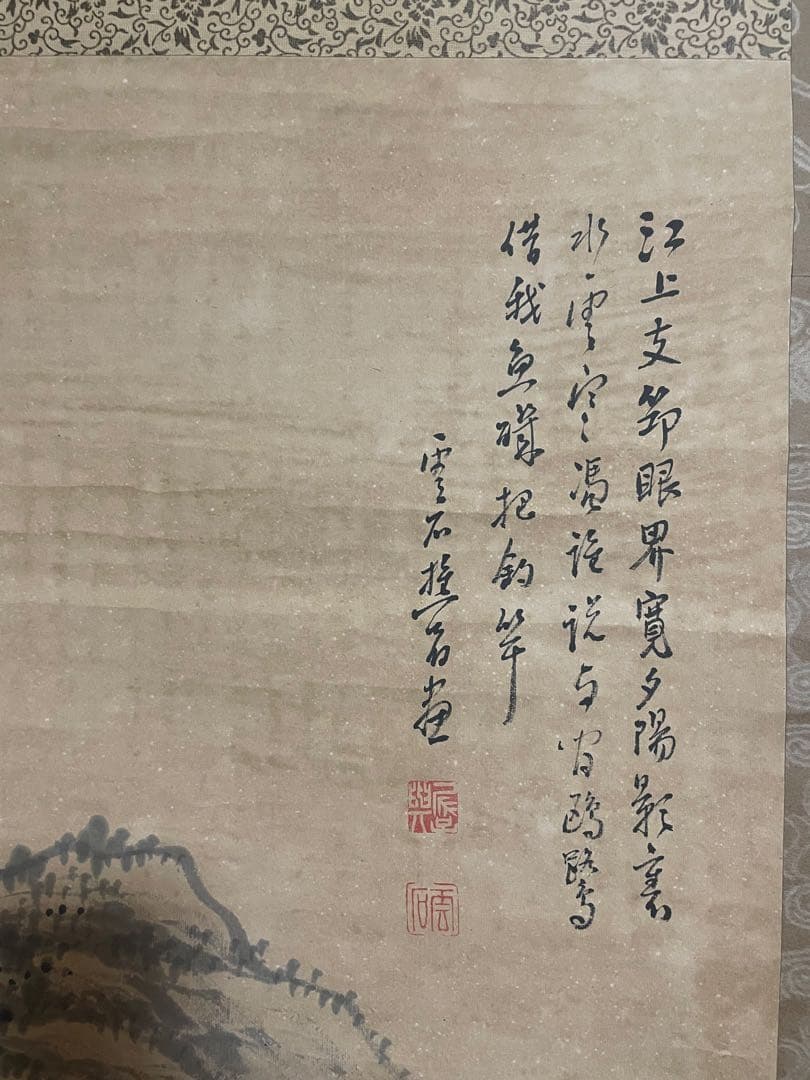 江上支節眼界寛夕陽影裏
水雲寒憑誰説与閒鷗鷺
借我魚磯把釣竿
雲石樵者画
雲石